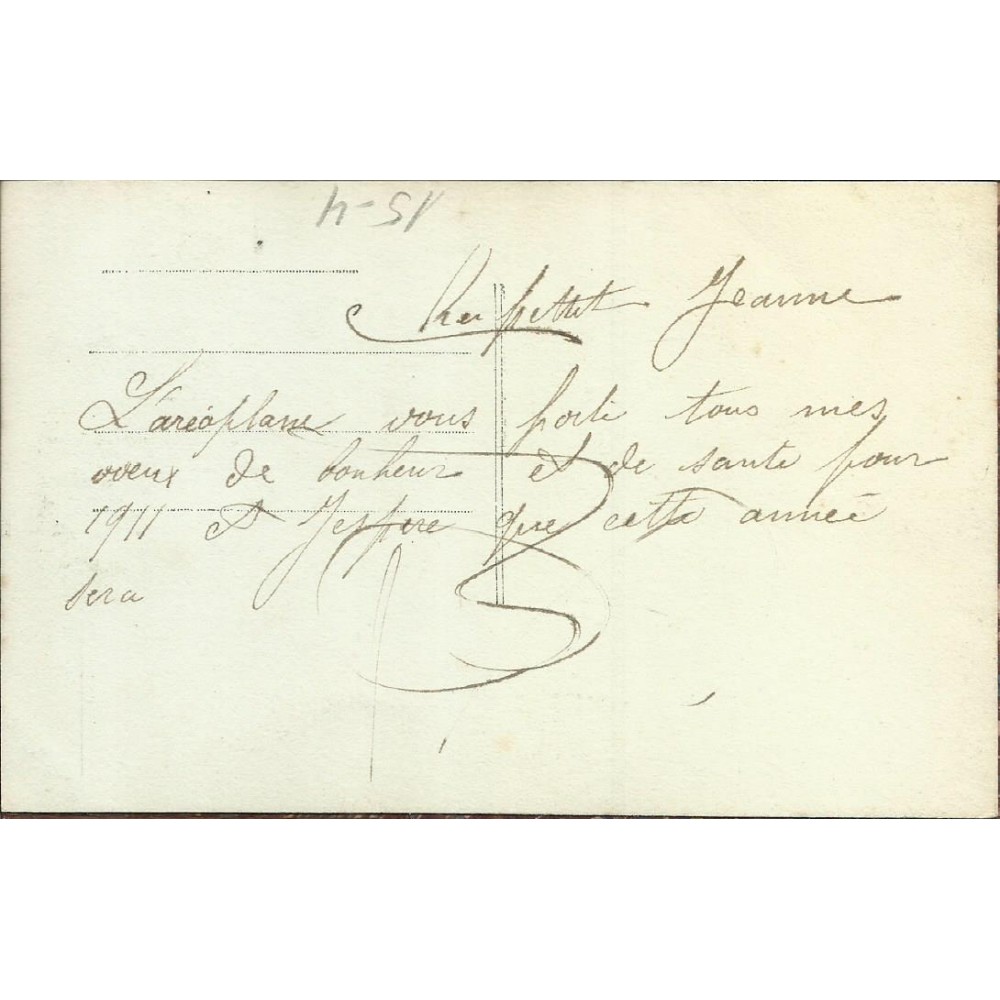 15-4
Cher pettit Jeanne
L'aréoplane vous porte tous mes
voeux de bonheur et de santé pour
1911 et Jespere que cette année
sera